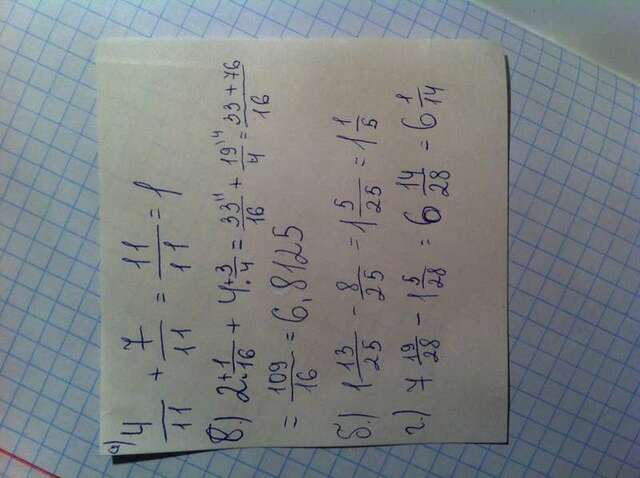 а) 4/11 + 7/11 = 11/11 = 1
в.) 2 1/16 + 4 3/4 = 33/16 + 19/4 = 33+76/16
= 109/16 = 6,8125
б.) 1 13/25 - 8/25 = 1 5/25 = 1 1/5
г.) 7 19/28 - 1 5/28 = 6 14/28 = 6 1/14